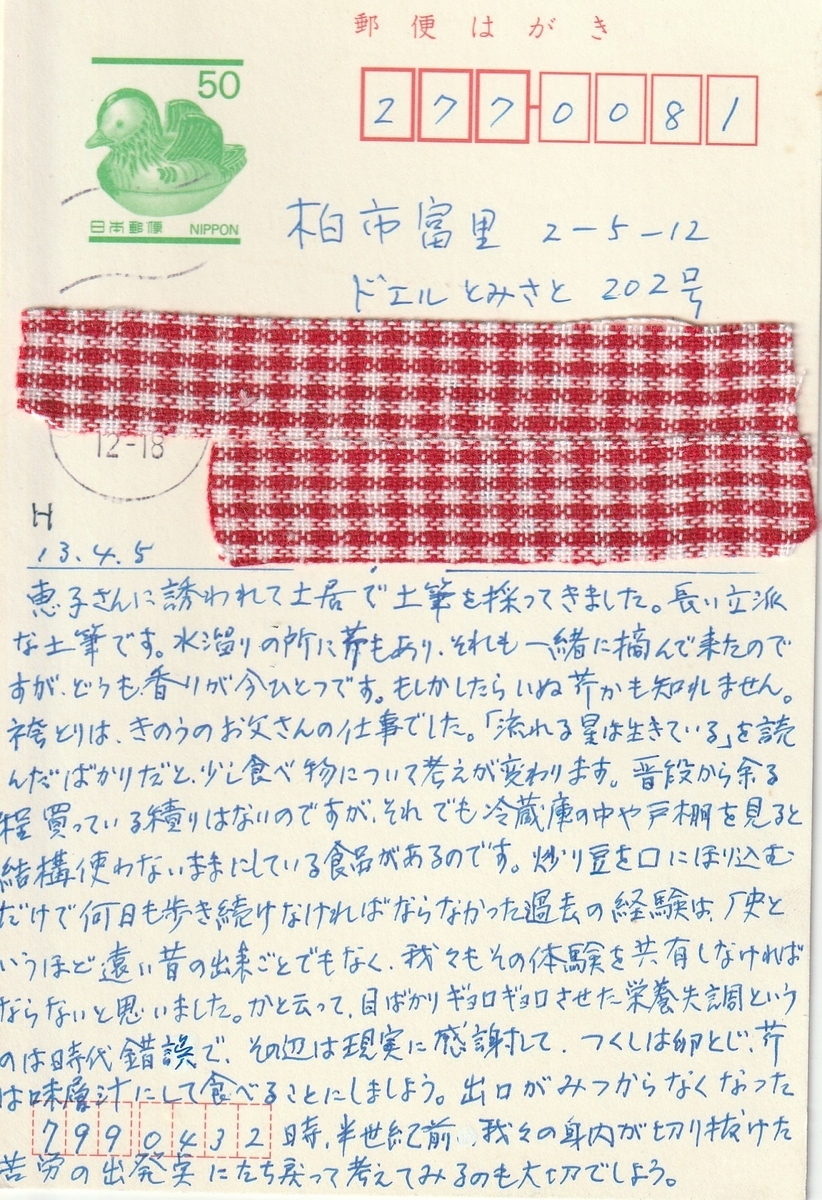 郵便はがき
50
日本郵便 NIPPON
2770081
柏市富里 2-5-12
ドエルとみさと 202号
12-18
H
13.4.5
恵子さんに誘われて土居で土筆を採ってきました。長い立派
な土筆です。水溜りの所に芹もあり、それも一緒に摘んで来たので
すが、どうも香りが今ひとつです。もしかしたらいぬ芹かも知れません。
袴とりは、きのうのお父さんの仕事でした。「流れる星は生きている」を読
んだばかりだと、少し食べ物について考えが変わります。普段から余る
程買っている積りはないのですが、それでも冷蔵庫の中や戸棚を見ると
結構使わないままにしている食品があるのです。炒り豆を口にほり込む
だけで何日も歩き続けなければならなかった過去の経験は、史と
いうほど遠い昔の出来ごとでもなく、我々もその体験を共有しなければ
ならないと思いました。かと云って、目ばかりギョロギョロさせた栄養失調という
のは時代錯誤で、その辺は現実に感謝して、つくしは卵とじ、芹
は味噌汁にして食べることにしましょう。出口がみつからなくなった
7990432
時、半世紀前、我々の身内が切り抜けた
苦労の出発実にたち戻って考えてみるのも大切でしょう。